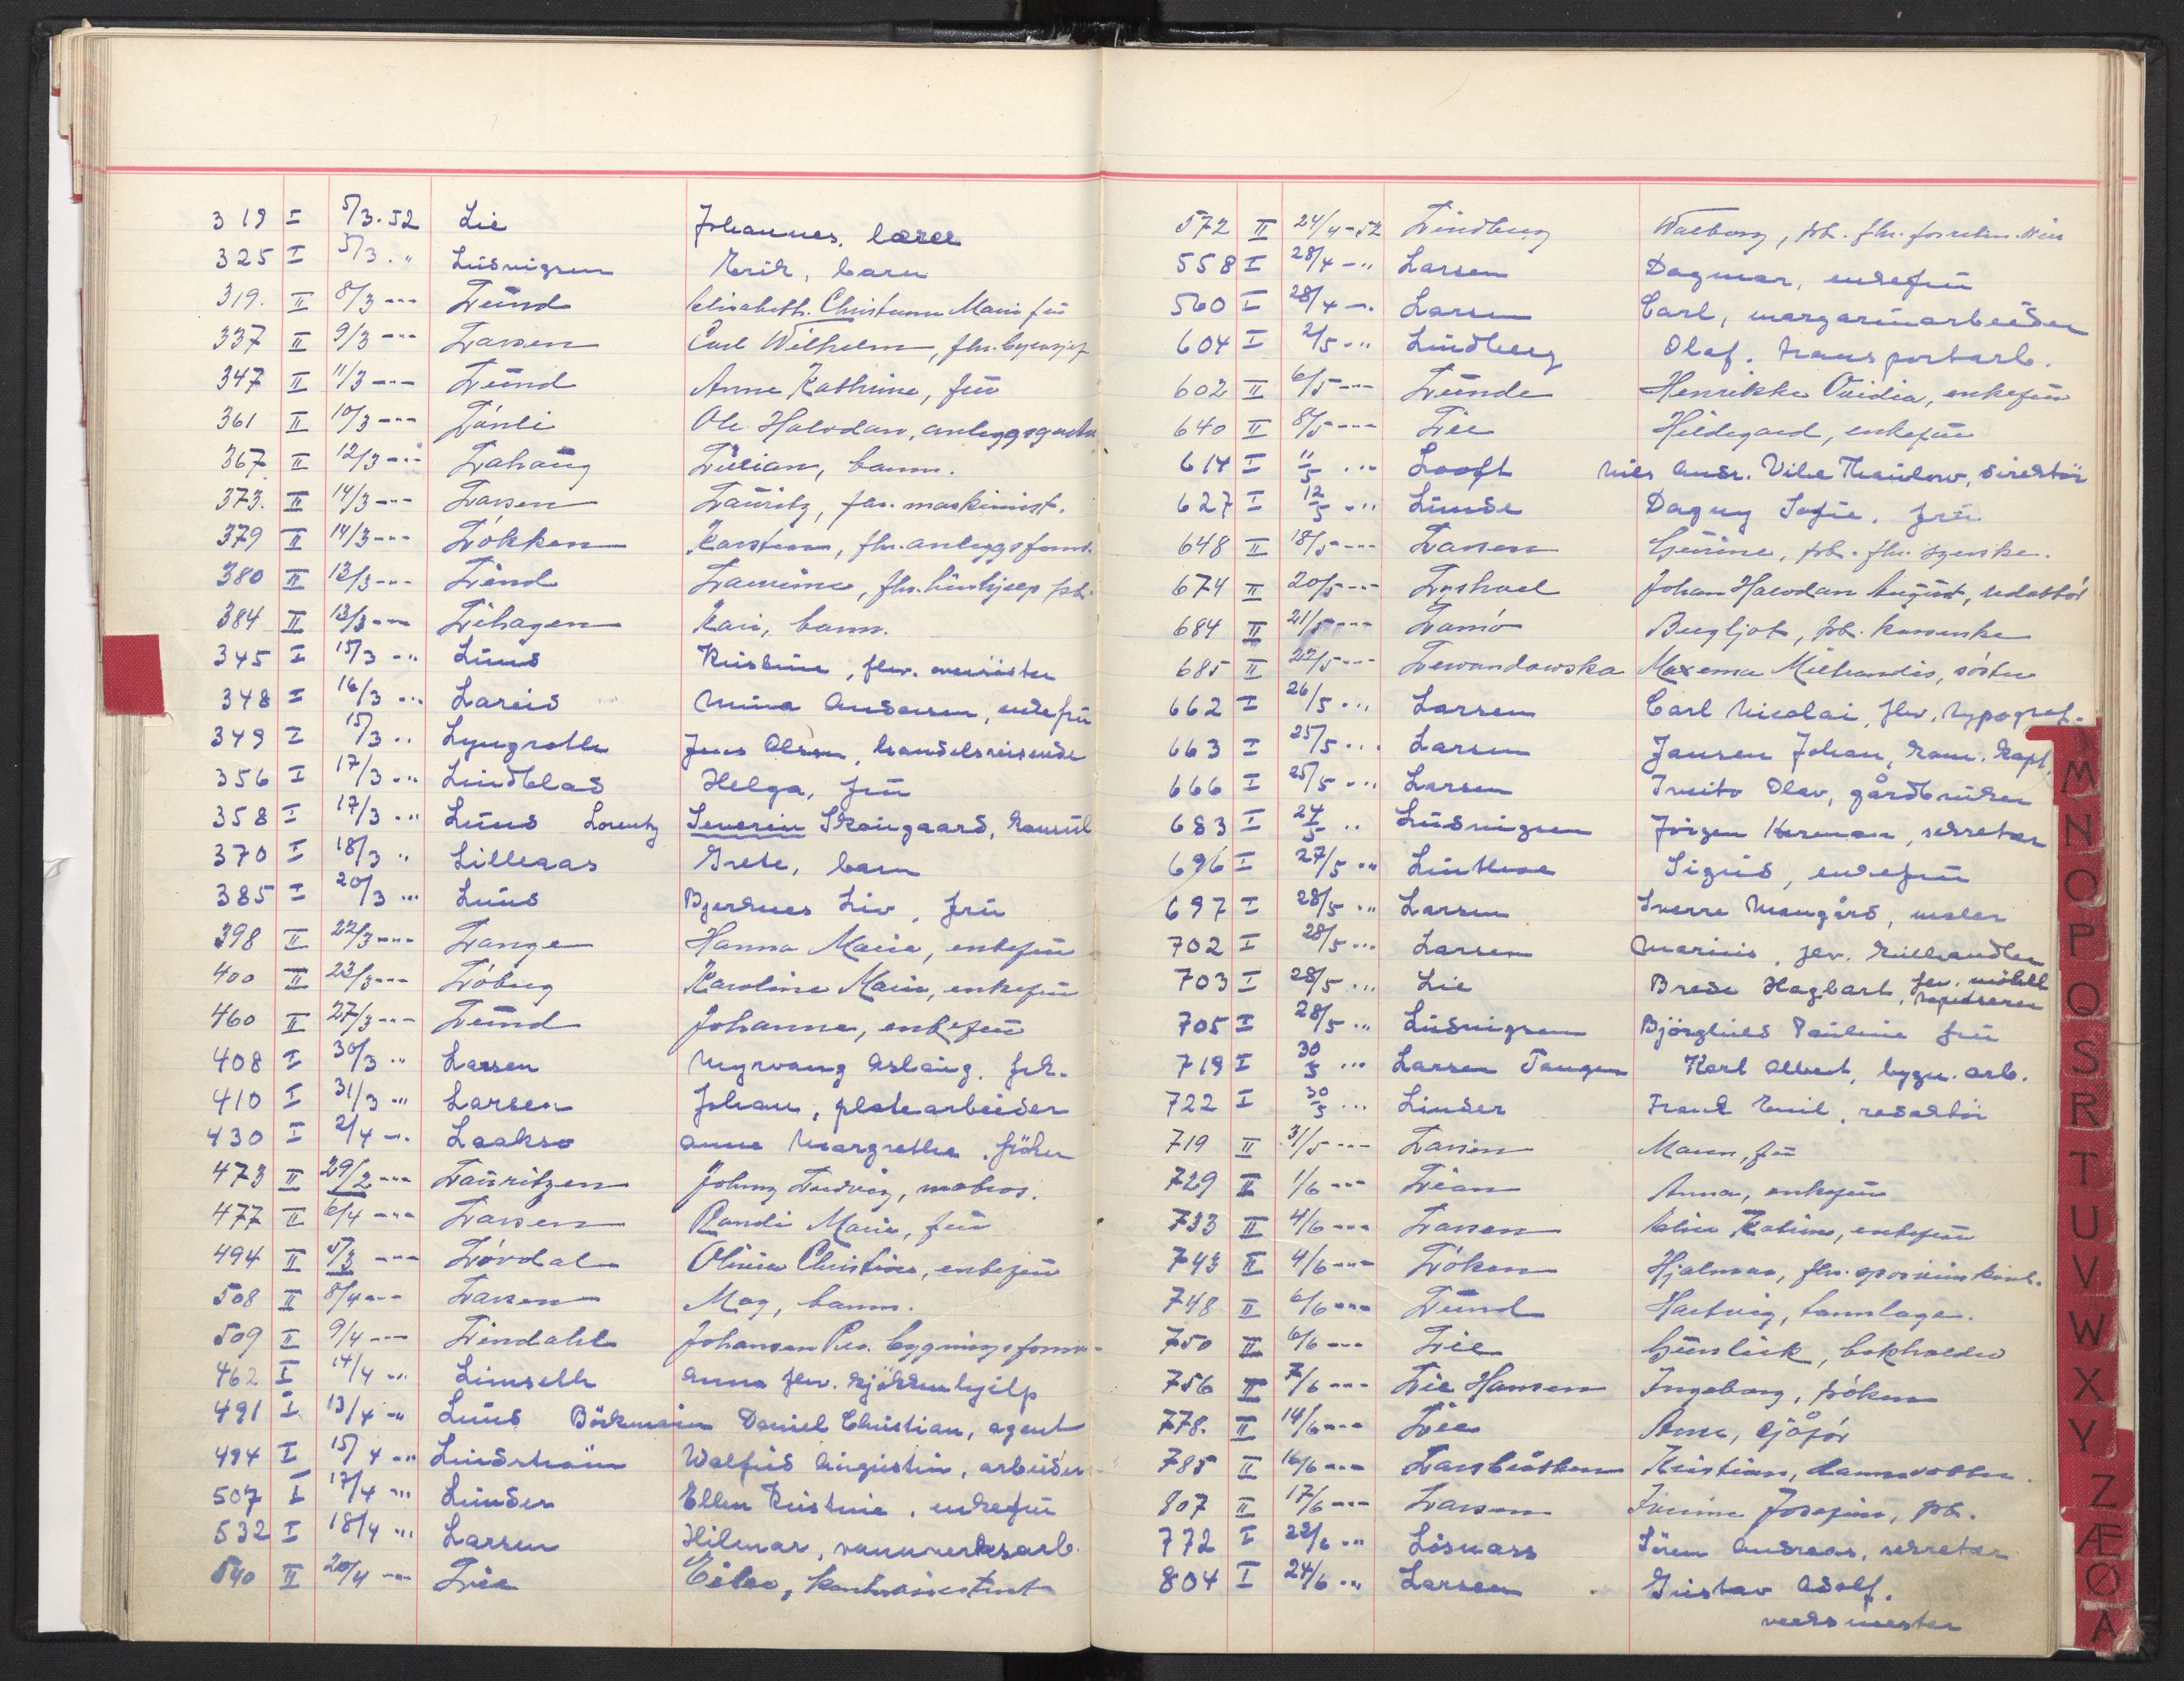 319 I 5/3. 52 Lie Johannes, lærer
325 I 5/3 . " Ludvigsen Erik, barn
319. II 8/3 --- Lund Elisabeth Christiane Marie fru
337 II 9/3 --- Larsen Carl Wilhelm, fhv.
347 II 11/3 --- Lund Anne Kathrine, fru
361 II 10/3 --- Lónli Ole Halvdan,
367 II 12/3 --- Lahaug Lillian, barn.
373. II 14/3 --- Larsen Lauritz, fhv. maskinist.
379 II 14/3 --- Lökken Karsten, fhv. anleggsform.
380 II 13/3 --- Lund Laurine, fhv. hushjelp
384 II 13/3 --- Lihagen Kari, barn.
345 I 15/3 - " Lund Kristine, flv.
348 I 16/3 ... Lareid Mina Andersen, enkefru
349 I 15/3 .. Lyngroth Jens Olsen, handelsreisende
356 I 17/3 ... Lindblad Helga, fru
358 I 17/3 ... Lund Lorentz Severin Skougaard, konsul
370 I 18/3 " Lilleaas Grete, barn
385 I 20/3 ... Lund Bjerknes Liv, fru
398 II 22/3 --- Lange Hanna Marie, enkefru
400 II 23/3 --- Löberg Karoline Marie, enkefru
460 II 27/3 --- Lund Johanne, enkefru
408 I 30/3 .. Larsen Myrvang Aslaug. frk.
410 I 31/3 ... Larsen Johan, platearbeider
430 I 2/4 -.. Laakso Anna Margrethe, fröken
473 II 29/2 --- Lauritzen Johnny Ludvig, matros.
477 II 6/4 --- Larsen Randi Marie, fru
494 II 5/3 --- Lövdal Olivia Christine, enkefru
508 II 8/4 --- Larsen May, barn.
509 II 9/4 --- Lindahl Johansen
462 I 14/4 ... Limseth Anna flv. kjökkenhjelp
491 I 13/4 -" Lund Böckmann Daniel Christian, agent
494 I 15/4 ... Lindström Walfrid Augustin, arbeider
507 I 17/4 ... Lunder Ellen Kristine, enkefru
532 I 18/4 ... Larsen Hilmar, vannverksarb.
540 II 20/4 --- Lie Eilev, kontorassistent
572 II 24/4 - 52 Lindberg Walborg,
558 I 28/4 - .. Larsen Dagmar, enkefru
560 I 28/4 - . Larsen Carl, margarinarbeider
604 I 2/5 ... Lindberg Olaf. transportarb.
602 II 6/5 --- Lunde Henrikke Ovidia, enkefru
640 II 8/5 --- Lie Hildegard, enkefru
614 I 11/5 ... Looft Nils Andr. Vibe Thaulow, direktör
627 I 12/5 ... Lunde Dagny Sofie, fru
648 II 18/5 --- Larsen Gurine, frk. fhv. syerske.
674 II 20/5 --- Lyshoel Johan Halvdan August, redaktör
684 II 21/5 --- Lamö Bergljot, frk. kasserske
685 II 22/5 --- Lewandowska Maxema söster
662 I 26/5 ... Larsen Carl Nicolai, flv, typograf.
663 I 25/5 ... Larsen Jansen Johan, kom. kapt.
666 I 25/5 ... Larsen Tveito Olav, gårdbruker
683 I 24/5 .. Ludvigsen Jörgen Herman, sekretær
696 I 27/5 .. Linthoe Sigrid, enkefru
697 I 28/5 .. Larsen Sverre Maugård, maler
702 I 28/5 ... Larsen Marius, flv. kullhandler
703 I 28/5 ... Lie Brede Hagbart, flv. möbell tapetserer
705 I 28/5 .. Ludvigsen Björghild Pauline fru
719 I 30/5 ... Larsen Tangen Karl Albert, bygn. arb.
722 I 30/5 ... Linder Frank Emil, redaktör
719 II 31/5 --- Larsen Maren, fru
729 II 1/6 --- Lian Anna, enkefru
733 II 4/6 --- Larsen Katrine, enkefru
743 II 4/6 --- Löken Hjalmar,
748 II 6/6 --- Lund Hartvig, tannlæge.
750 II 6/6 --- Lie Gunleik, bokholder
756 II 7/6 --- Lie Hansen Ingeborg, fröken
778. II 14/6 --- Lie Arne, sjåför
785 II 16/6 --- Larsbråthen Kristian,
807 II 17/6 --- Larsen Josefine, frk.
772 I 22/6 ... Lösnæss Sören Andreas, sekretær
804 I 24/6 ... Larsen Gustav Adolf.
verksmester
M
N
O
P
Q
S
R
T
U
V
W
X
Y
Z
Æ
Ø
A